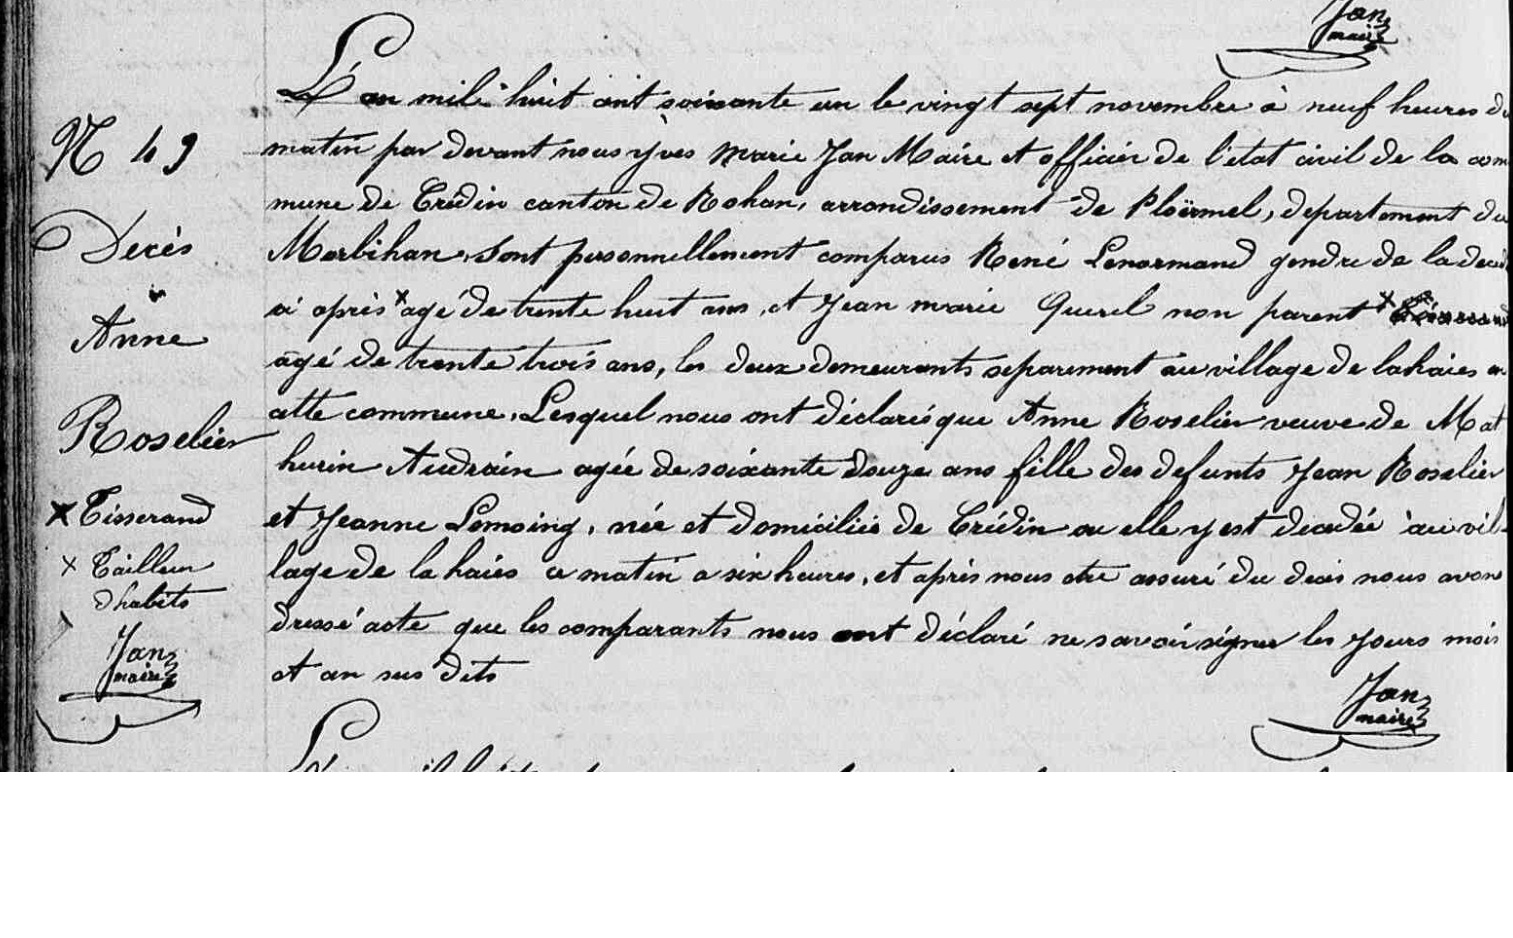 Jan
maire
L'an mil huit cent soixante un le vingt sept novembre à neuf heures du
matin par devant nous yves marie Jan Maire et officier de l'état civil de la com
mune de Crédin canton de Rohan, arrondissement de Ploërmel, departement du
Morbihan, Sont personnellement comparus René Lenormand gendre de la
ci après x agé de trente huit ans, et Jean marie Querel non parent x
agé de trente trois ans, les deux demeurants séparement au village de la haies en
cette commune, Lesquel nous ont déclarés que Anne Roselier veuve de Mat
hurin Audrain agée de soixante douze ans fille des defunts Jean Roselier
et Jeanne Lemoing, née et domiciliée de Crédin ou elle y est decedée au vil-
lage de la haies ce matin a six heures, et après nous etre assuré du decès nous avons
dressé acte que les comparants nous ont déclaré ne savoir signer les jours mois
et an sus dits
Jan
maire
N 49
Decès
Anne
Roselier
x Tisserand
x Tailleur
d'habits
Jan
maire